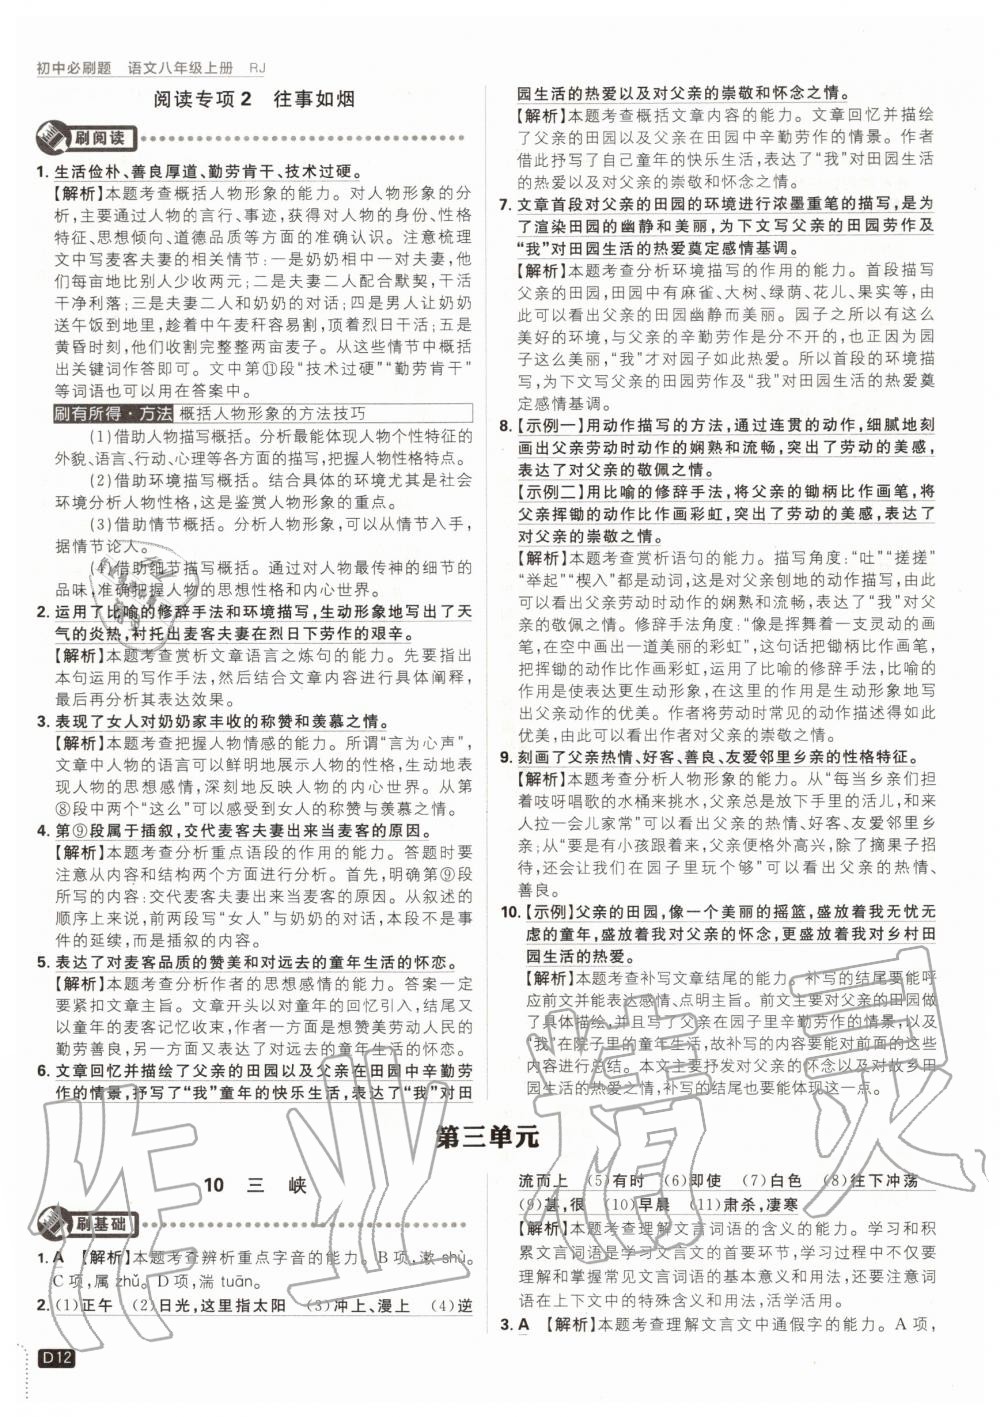 初中必刷题 语文八年级上册 RJ
阅读专项2 往事如烟
刷阅读
1. 生活俭朴、善良厚道、勤劳肯干、技术过硬。
【解析】本题考查概括人物形象的能力。对人物形象的分
析,主要通过人物的言行、事迹,获得对人物的身份、性格
特征、思想倾向、道德品质等方面的准确认识。注意梳理
文中对写麦客夫妻的相关情节:一是奶奶相中一对夫妻,他
们每亩地比别人少收两元;二是夫妻二人配合默契,干活
干净利落;三是夫妻二人和奶奶的对话;四是男人让奶奶
送午饭到地里,趁着中午麦秆容易割,顶着烈日干活;五是
黄昏时分,他们居然割完整整两亩麦子。从这些情节中概括
出关键词作答即可。文中第⑪段“技术过硬”“勤劳肯干”
等词语也可以用在答案中。
刷有所得·方法 概括人物形象的方法技巧
(1)借助人物描写概括。分析最能体现人物个性特征的
外貌、语言、行动、心理等各方面的描写,把握人物性格特点。
(2)借助环境描写概括。结合具体的环境尤其是社会
环境分析人物性格,这是鉴赏人物形象的重点。
(3)借助情节概括。分析人物形象,可以从情节入手,
据情节论人。
(4)借助细节描写概括。通过对人物最传神的细节的
品味,准确把握人物的思想性格和内心世界。
2. 运用了比喻的修辞手法和环境描写,生动形象地写出了天
气的炎热,衬托出麦客夫妻在烈日下劳作的艰辛。
【解析】本题考查赏析文章语言之炼句的能力。先要指出
本句运用的写作手法,然后结合文章内容进行具体阐释,
最后再分析其表达效果。
3. 表现了女人对奶奶家丰收的称赞和羡慕之情。
【解析】本题考查把握人物情感的能力。所谓“言为心声”,
文章中人物的语言可以鲜明地展示人物的性格,生动地表
现人物的思想感情,深刻地反映人物的内心世界。从第
⑧段中两个“这么”可以感受到女人的称赞与羡慕之情。
4. 第⑨段属于插叙,交代麦客夫妻出来当麦客的原因。
【解析】本题考查分析重点语段的作用的能力。答题时要
注意从内容和结构两个方面进行分析。首先,明确第⑨段
所写的内容:交代麦客夫妻出来当麦客的原因。从叙述的
顺序上来说,前两段写“女人”与奶奶的对话,本段不是事
件的延续,而是插叙的内容。
5. 表达了对麦客品质的赞美和对远去的童年生活的怀恋。
【解析】本题考查分析作者的思想感情的能力。答案一定
要紧扣文章主旨。文章开头以对童年的回忆引入,结尾又
以童年的麦客记忆收束,作者一方面是想赞美劳动人民的
勤劳善良,另一方面又表达了对远去的童年生活的怀恋。
6. 文章回忆并描绘了父亲的田园以及父亲在田园中辛勤劳
作的情景,抒写了“我”童年的快乐生活,表达了“我”对田
园生活的热爱以及对父亲的崇敬和怀念之情。
【解析】本题考查概括文章内容的能力。文章回忆并描绘
了父亲的田园以及父亲在田园中辛勤劳作的情景。作者
借此抒写了自己童年的快乐生活,表达了“我”对田园生活
的热爱以及对父亲的崇敬和怀念之情。
7. 文章首段对父亲的田园的环境进行浓墨重笔的描写,是为
了渲染田园的幽静和美丽,为下文写父亲的田园劳作及
“我”对田园生活的热爱奠定感情基调。
【解析】本题考查分析环境描写的作用的能力。首段描写
了父亲的田园,田园中有麻雀、大树、绿荫、花儿、果实等,由
此可以看出父亲的田园幽静而美丽。园子之所以有这么
美好的环境,与父亲的辛勤劳作是分不开的,也正因为园
子这么美丽,“我”才对园子如此热爱。所以首段的环境描
写,为下文写父亲的田园劳作及“我”对田园生活的热爱奠
定感情基调。
8. 【示例一】用动作描写的方法,通过连贯的动作,细腻地刻
画出父亲劳动时动作的娴熟和流畅,突出了劳动的美感,
表达了对父亲的敬佩之情。
【示例二】用比喻的修辞手法,将父亲的锄柄比作画笔,将
父亲挥锄的动作比作画彩虹,突出了劳动的美感,表达了
对父亲的崇敬之情。
【解析】本题考查赏析语句的能力。描写角度:“吐”“搓搓”
“举起”“楔入”都是动词,这是对父亲刨地的动作描写,由此
可以看出父亲劳动时动作的娴熟和流畅,表达了“我”对父
亲的敬佩之情。修辞手法角度:“像是挥舞着一支灵动的画
笔,在空中画出一道美丽的彩虹”,这句话把锄柄比作画笔,
把挥锄的动作比作画彩虹,运用了比喻的修辞手法,比喻的
作用是使表达更生动形象,在这里的作用是生动形象地写
出父亲动作的优美。作者将劳动时常见的动作描述得如此
优美,由此可以看出作者对父亲的崇敬之情。
9. 刻画了父亲热情、好客、善良、友爱邻里乡亲的性格特征。
【解析】本题考查分析人物形象的能力。从“每当乡亲们担
着吱呀唱歌的水桶来挑水,父亲总是放下手里的活儿,和来
人拉一会儿家常”可以看出父亲的热情、好客、友爱邻里乡
亲;从“要是有孩子们来,父亲便格外高兴,除了摘果子招
待,还会让我们在园子里玩个够”可以看出父亲的热情、
善良。
10. 【示例】父亲的田园,像一个美丽的摇篮,盛放着我无忧无
虑的童年,盛放着我对父亲的怀念,更盛放着我对乡村田
园生活的热爱。
【解析】本题考查补写文章结尾的能力。补写的结尾要能呼
应前文并能表达感情、点明主旨。前文主要对父亲的田园做
了具体描绘,并且写了父亲在园子里辛勤劳作的情景,以及
“我”在院子里的童年生活,故补写的内容要能对前面的这些
内容进行总结。本文主要抒发对父亲的怀念以及对故乡田
园生活的热爱之情,补写的结尾也要能体现这一主题。
第三单元
10 三 峡
刷基础
1. A 【解析】本题考查辨析重点字音的能力。B项,漱 shù。
C项,属 zhǔ。D项,湍 tuān。
2. (1)正午 (2)日光,这里指太阳 (3)冲上、漫上 (4)逆
流而上 (5)有时 (6)即使 (7)白色 (8)往下冲荡
(9)甚,很 (10)早晨 (11)肃杀,凄寒
【解析】本题考查理解文言词语的含义的能力。学习和积
累文言词语是学习文言文的首要环节,学习过程中不仅要
理解和掌握常见文言词语的基本意义和用法,还要注意词
语在上下文中的特殊含义和用法,活学活用。
3. A 【解析】本题考查理解文言文中通假字的能力。A项,
D12
作业精灵